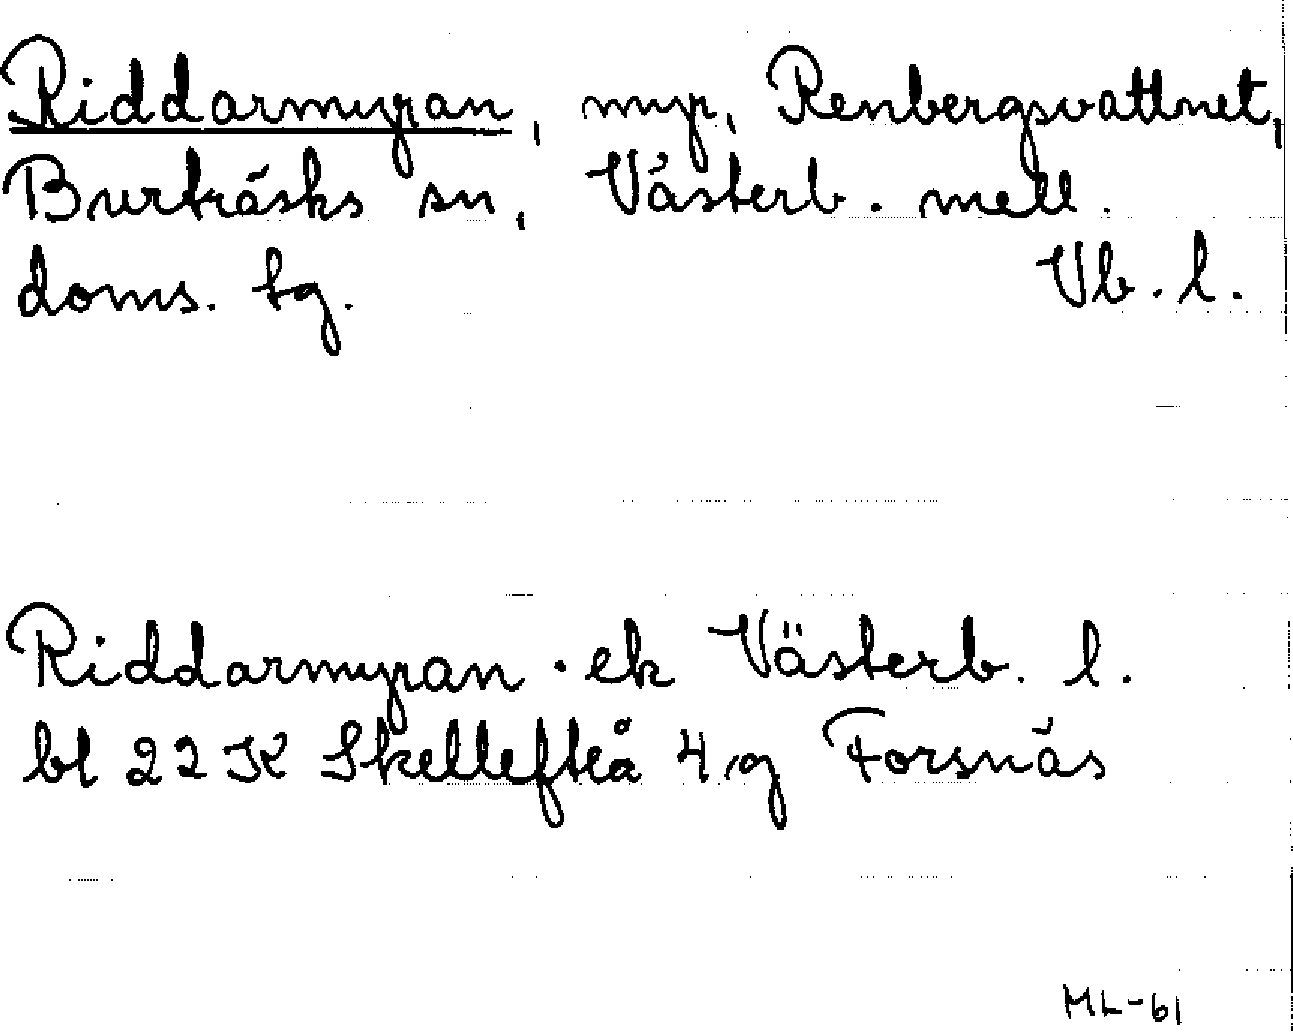 Riddarmyran, myr, Renbergsvattnet,
Burträsks sn, Västerb. mell.
doms. tg. Vb. l.
Riddarmyran · ek Västerb. l.
bl 22 K Skellefteå 4 g Forsnäs
ML-61